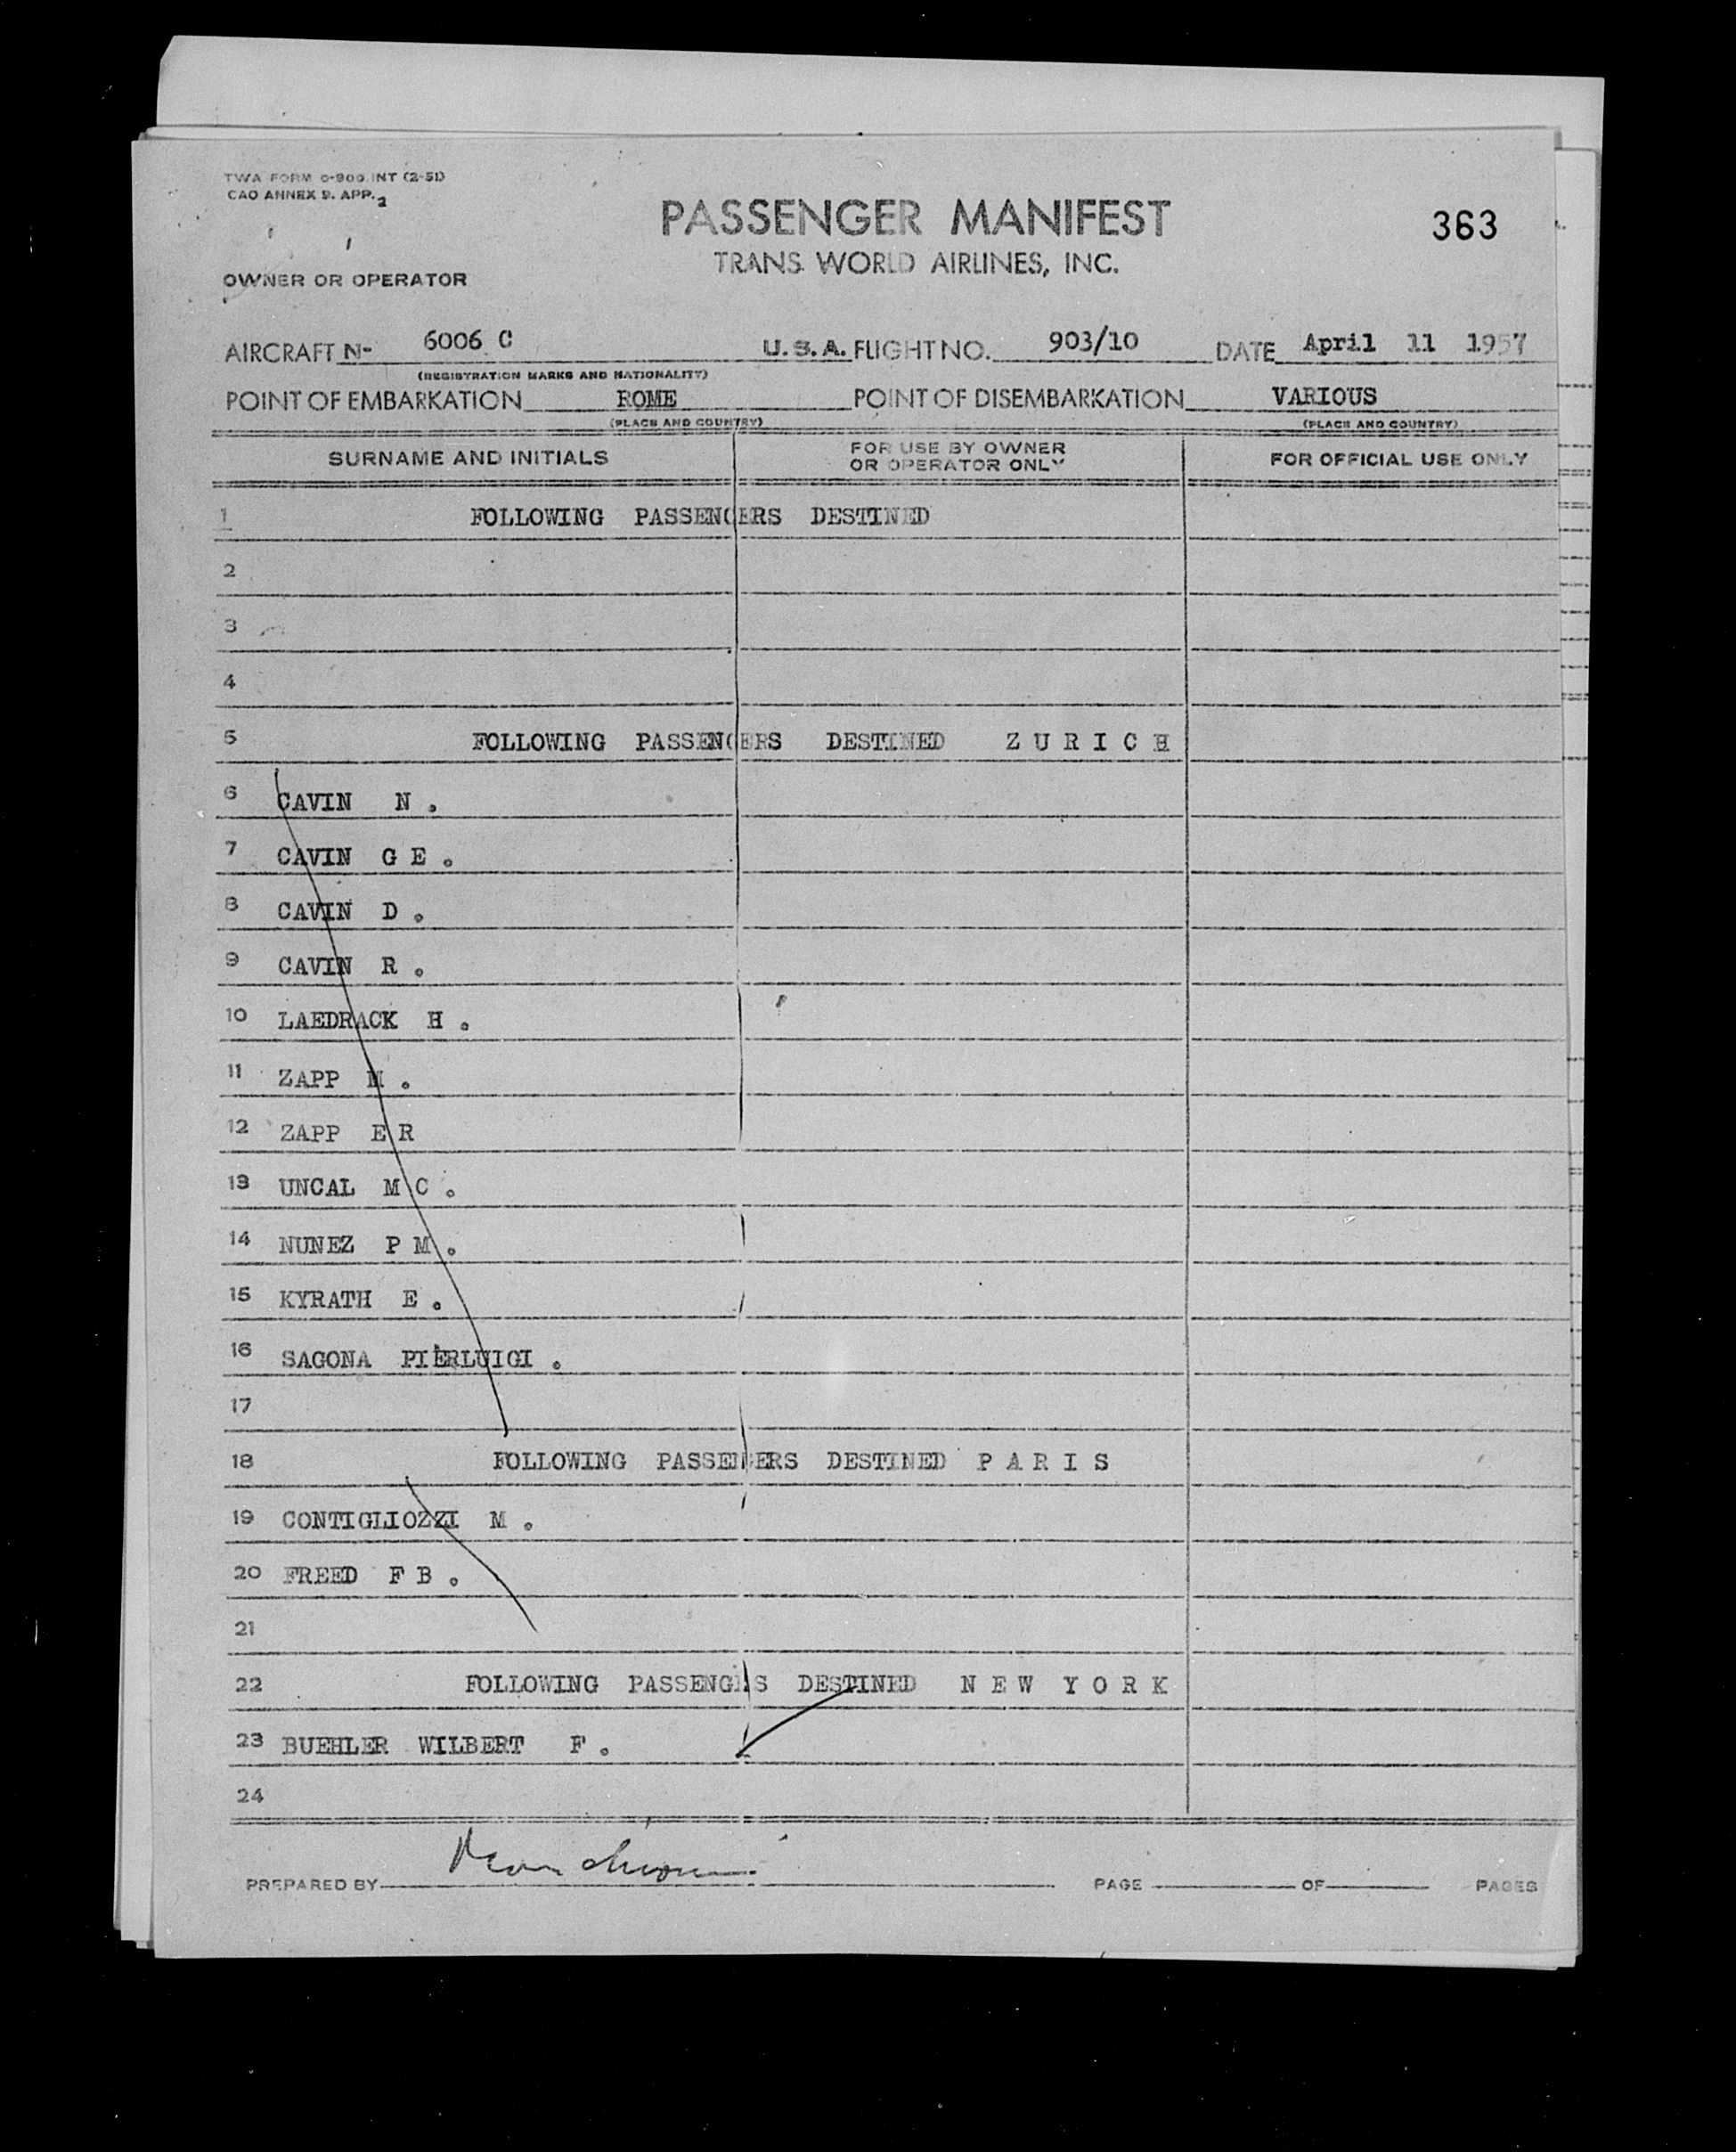 TWA FORM O-900 INT (2-51)
CAO ANNEX 9. APP. 2
PASSENGER MANIFEST
363
TRANS WORLD AIRLINES, INC.
OWNER OR OPERATOR
AIRCRAFT N- 6006 C U.S.A. FLIGHT NO. 903/10 DATE April 11 1957
(REGISTRATION MARKS AND NATIONALITY)
POINT OF EMBARKATION ROME POINT OF DISEMBARKATION VARIOUS
(PLACE AND COUNTRY) (PLACE AND COUNTRY)
SURNAME AND INITIALS FOR USE BY OWNER OR OPERATOR ONLY FOR OFFICIAL USE ONLY
1 FOLLOWING PASSENGERS DESTINED
2
3
4
5 FOLLOWING PASSENGERS DESTINED Z U R I C H
6 CAVIN N.
7 CAVIN G E.
8 CAVIN D.
9 CAVIN R.
10 LAEDRACK H.
11 ZAPP M.
12 ZAPP E R
13 UNCAL M C.
14 NUNEZ P M.
15 KYRATH E.
16 SAGONA PIERLUIGI.
17
18 FOLLOWING PASSENGERS DESTINED P A R I S
19 CONTIGLIOZZI M.
20 FREED F B.
21
22 FOLLOWING PASSENGRS DESTINED N E W Y O R K
23 BUEHLER WILBERT F.
24
PREPARED BY PAGE OF PAGES